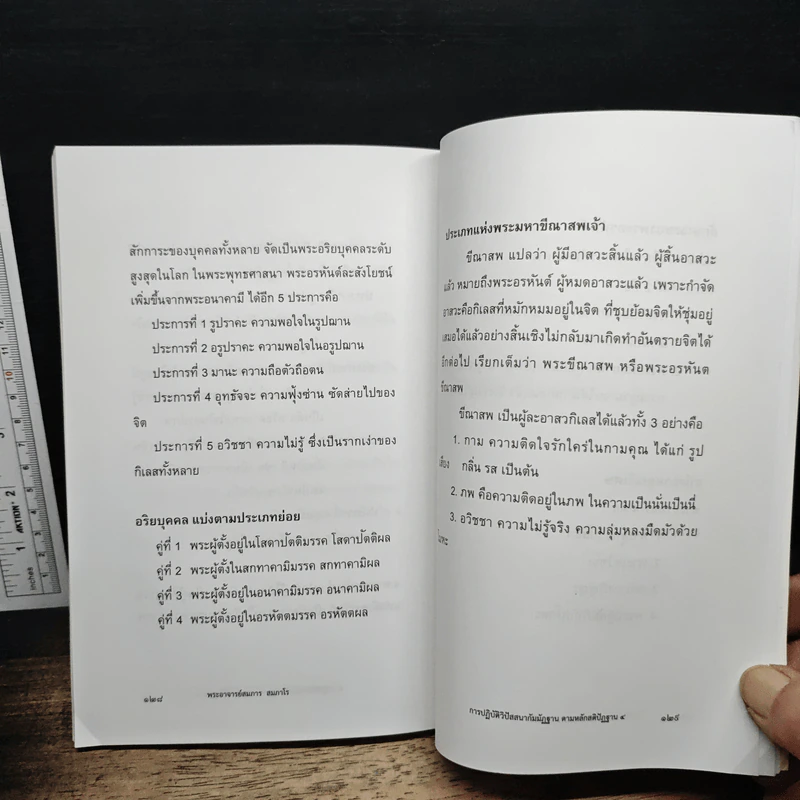 สักการะของบุคคลทั้งหลาย จัดเป็นพระอริยบุคคลระดับ
สูงสุดในโลก ในพระพุทธศาสนา พระอรหันต์ละสังโยชน์
เพิ่มขึ้นจากพระอนาคามี ได้อีก 5 ประการคือ
ประการที่ 1 รูปราคะ ความพอใจในรูปฌาน
ประการที่ 2 อรูปราคะ ความพอใจในอรูปฌาน
ประการที่ 3 มานะ ความถือตัวถือตน
ประการที่ 4 อุทธัจจะ ความฟุ้งซ่าน ซัดส่ายไปของ
จิต
ประการที่ 5 อวิชชา ความไม่รู้ ซึ่งเป็นรากเง่าของ
กิเลสทั้งหลาย
อริยบุคคล แบ่งตามประเภทย่อย
คู่ที่ 1 พระผู้ตั้งอยู่ในโสดาปัตติมรรค โสดาปัตติผล
คู่ที่ 2 พระผู้ตั้งในสกทาคามิมรรค สกทาคามิผล
คู่ที่ 3 พระผู้ตั้งอยู่ในอนาคามิมรรค อนาคามิผล
คู่ที่ 4 พระผู้ตั้งอยู่ในอรหัตตมรรค อรหัตตผล
๑๒๘ พระอาจารย์สมภาร สมภาโร
ประเภทแห่งพระมหาขีณาสพเจ้า
ขีณาสพ แปลว่า ผู้มีอาสวะสิ้นแล้ว ผู้สิ้นอาสวะ
แล้ว หมายถึงพระอรหันต์ ผู้หมดอาสวะแล้ว เพราะกำจัด
อาสวะคือกิเลสที่หมักหมมอยู่ในจิต ที่ชุบย้อมจิตให้ชุ่มอยู่
เสมอได้แล้วอย่างสิ้นเชิงไม่กลับมาเกิดทำอันตรายจิตได้
อีกต่อไป เรียกเต็มว่า พระขีณาสพ หรือพระอรหันต
ขีณาสพ
ขีณาสพ เป็นผู้ละอาสวกิเลสได้แล้วทั้ง 3 อย่างคือ
1. กาม ความติดใจรักใคร่ในกามคุณ ได้แก่ รูป
เสียง กลิ่น รส เป็นต้น
2. ภพ คือความติดอยู่ในภพ ในความเป็นนั่นเป็นนี่
3. อวิชชา ความไม่รู้จริง ความลุ่มหลงมืดมัวด้วย
โมหะ
การปฏิบัติวิปัสสนากัมมัฏฐาน ตามหลักสติปัฏฐาน ๔ ๑๒๙
12
11
10
9
3
2
1
AKTION
inches